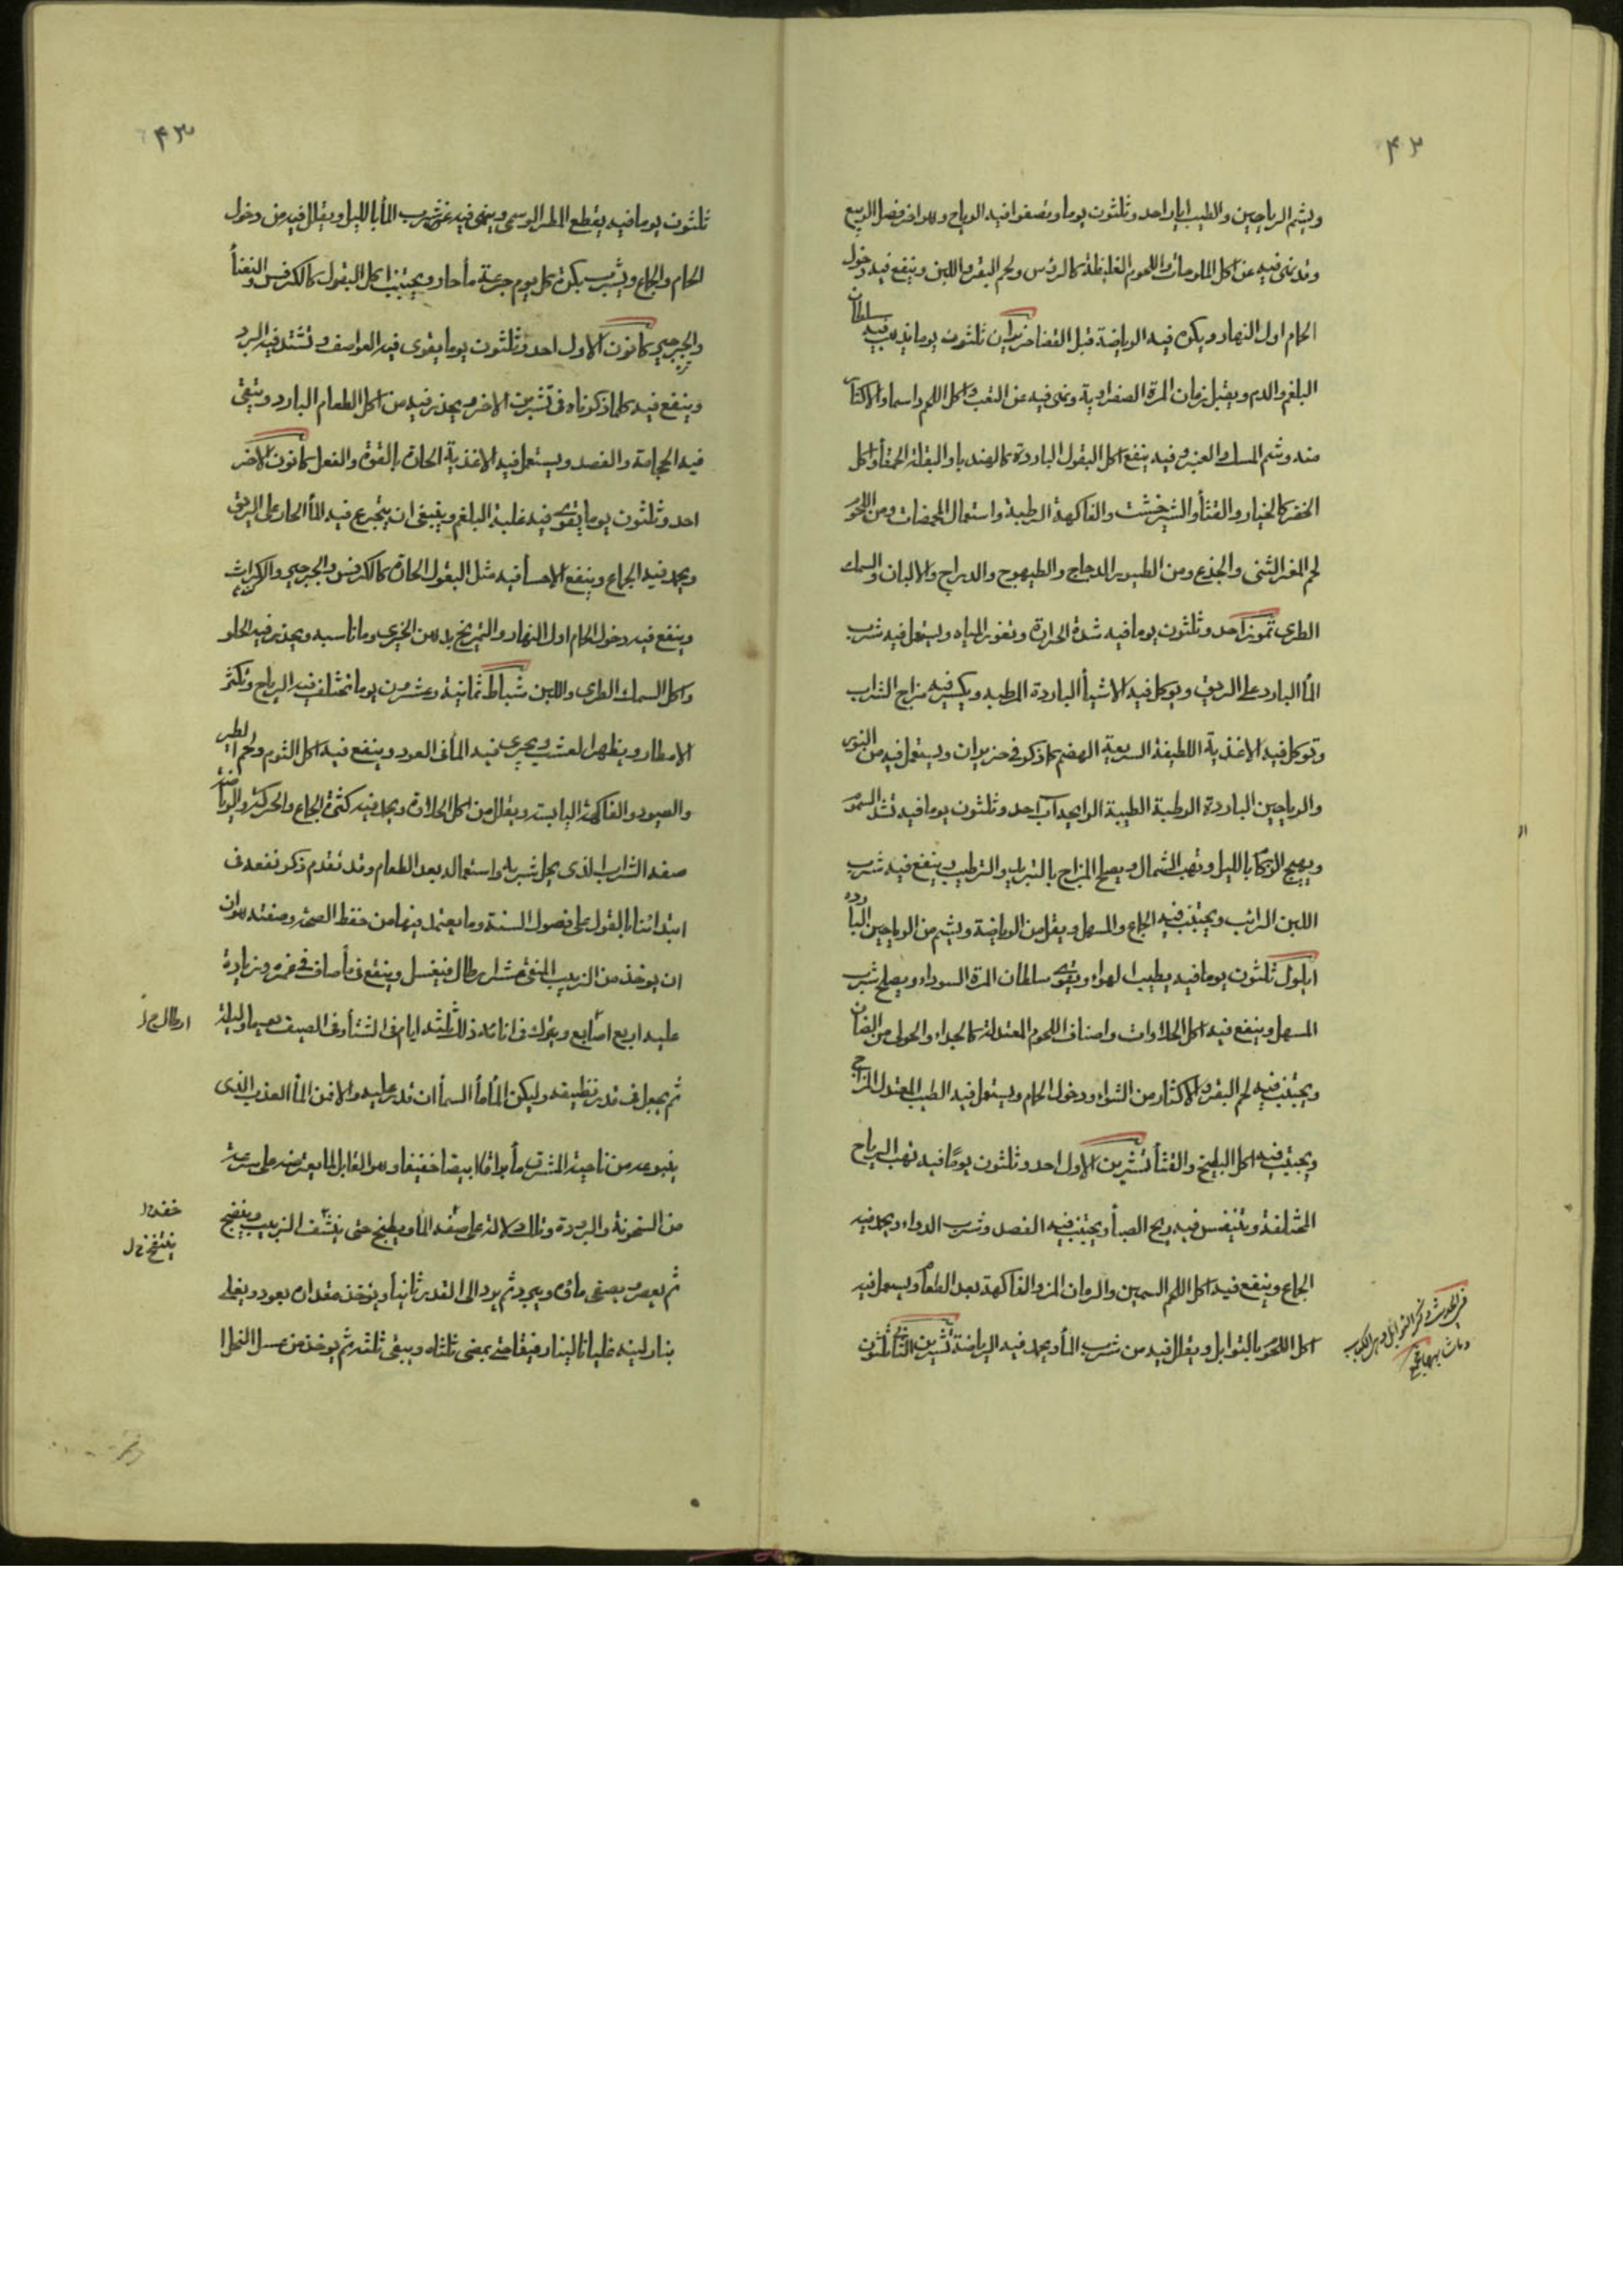 ٤٢
ويشم الرياحين والطيب ايار احد وثلثون يوما وتصفوا فيه الرياح وهو اخر فصل الربيع
وقد نهى فيه عن اكل الملوحات واللحوم الغليظة كالرؤس ولحم البقر واللبن وينفع فيه دخول
الحمام اول النهار ويكره فيه الرياضة قبل الغذا حزيران ثلثون يوما يذهب فيه سلطان
البلغم والدم ويقبل زمان المرة الصفراوية ونهى فيه عن التعب واكل اللحم داسما والاكثار
منه وشم المسك والعنبر وفيه ينفع اكل البقول الباردة كالهندبا والبقلة الحمقا واكل
الخضر كالخيار والقثأ والشيرخشت والفاكهة الرطبة واستعمال المحمضات ومن اللحوم
لحم المعز الثنى والجذع ومن الطيور الدجاج والطيهوج والدراج والالبان والسمك
الطرى تموز احد وثلثون يوما فيه شدة الحرارة وتغور المياه ويستعمل فيه شرب
المأ البارد على الريق ويوكل فيه الاشيأ الباردة الرطبه ويكسر فيه مزاج الشراب
وتوكل فيه الاغذية اللطيفة السريعة الهضم كما ذكر فى حزيران ويستعمل فيه من النور
والرياحين الباردة الرطبة الطيبة الرايحه آب احد وثلثون يوما فيه تشتد السموم
ويهيج الزكام بالليل وتهب الشمال ويصلح المزاج بالتبريد والترطيب وينفع فيه شرب
اللبن الرائب ويجتنب فيه الجماع والمسهل ويقل من الرياضة ويشم من الرياحين الباردة
ايلول ثلثون يوما فيه يطيب الهواء ويقوى سلطان المرة السوداء ويصلح شرب
المسهل وينفع فيه اكل الحلاوات واصناف اللحوم المعتدلة كالجداء والحولى من الضان
ويجتنب فيه لحم البقر والاكثار من الشواء ودخول الحمام ويستعمل فيه الطيب المعتدل المزاج
ويجتنب فيه اكل البطيخ والقثأ تشرين الاول احد وثلثون يومًا فيه تهب الرياح
المختلفة ويتنفس فيه ريح الصبأ ويجتنب فيه الفصد وشرب الدواء ويحمد فيه
الجماع وينفع فيه اكل اللحم السمين والرمان المز والفاكهة بعد الطعام ويستعمل فيه
اكل اللحوم بالتوابل ويقلل فيه من شرب المأ ويحمد فيه الرياضة تشرين الثانى ثلثون
٤٣
ثلثون يوما فيه يقطع المطر الوسمى وينهى فيه عن شرب المأ بالليل ويقلل فيه من دخول
الحمام والجماع ويشرب بكرة كل يوم جرعة مأ حار ويجتنب اكل البقول كالكرفس والنعنأ
والجرجير كانون الاول احد وثلثون يوما يقوى فيه العواصف وتشتد فيه البرد
وينفع فيه كلما ذكرناه فى تشرين الاخر ويحذر فيه من اكل الطعام البارد ويتقى
فيه الحجامة والفصد ويستعمل فيه الاغذية الحارة بالقوة والفعل كانون الاخر
احد وثلثون يوما يقوى فيه غلبة البلغم وينبغى ان يتجرع فيه المأ الحار على الريق
ويحمد فيه الجماع وينفع الاحسأ فيه مثل البقول الحارة كالكرفس والجرجير والكراث
وينفع فيه دخول الحمام اول النهار والتمريخ بدهن الخيرى وما ناسبه ويحذر فيه الحلو
واكل السمك الطرى واللبن شباط ثمانية وعشرون يوما تختلف فيه الرياح وتكثر
الامطار ويظهر العشب ويجرى فيه المأ فى العود وينفع فيه اكل الثوم ولحم الطير
والصيود والفاكهة اليابسة ويقلل من اكل الحلاوة ويحمد فيه كثرة الجماع والحركة والرياضة
صفه الشراب الذى يحل شربه واستعماله بعد الطعام وقد تقدم ذكر نفعه فى
ابتدائنا بالقول على فصول السنة وما يعتمد فيها من حفظ الصحة وصفته هو ان
ان يوخذ من الزبيب المنقى عشر ارطال فيغسل وينقع فى مأ صاف فى غمره وزيادة
عليه اربع اصابع ويترك فى انائه ذلك ثلثه ايام فى الشتأ وفى الصيف يوما وليلة
ارطال خ ل
ثم يجعل فى قدر نظيفه وليكن المأ مأ السمأ ان قدر عليه والا فمن المأ العذب الذى
ينبوعه من ناحية المشرق مأ براقا ابيضا خفيفا وهو القابل لما يعترضه على سرعة
من السخونة والبرودة وتلك دلالة على صفة المأ ويطبخ حتى ينشف الزبيب وينضج
خفه خ ل
ينتفخ خ ل
ثم يعصر ويصفى ماؤه ويبرد ثم يرد الى القدر ثانيأ ويوخذ مقداره بعود ويغلى
بنار لينه غليانا لينا رقيقا حتى يمضى ثلثاه ويبقى ثلثه ثم يوخذ من عسل النحل